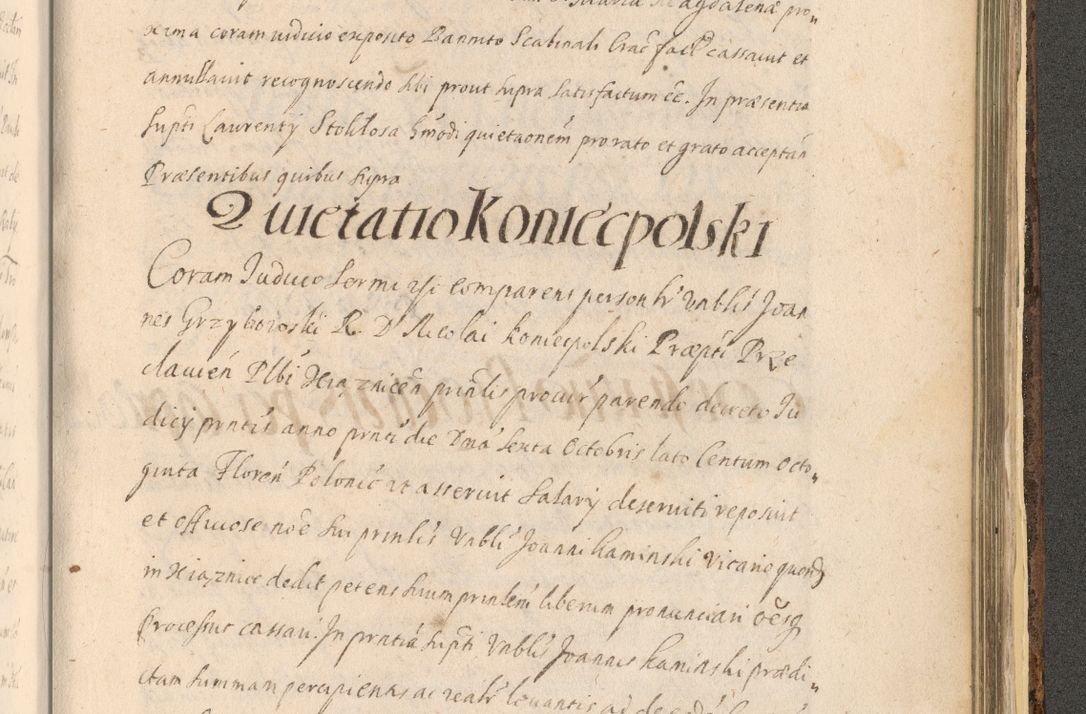 Maria Magdalenæ pro„
xima coram iudicio exposito Bannito Scabinali Crac̃ fact̃ cassauit et
annullauit recognoscendo sibi prout supra satisfactum eẽ. In præsentia
supti Laurentÿ Stoklosa hm̃odi quietaoném pro rato et grato acceptan
Præsentibus quibus supra
Quietatio Koniecpolski
Coram Iudicio Sermi comparens person lr̃ Vnblis Joan
nes Grzyboroski R. D Nicolai Koniecpolski Præpti Prze
clauień Plbi Xiąznicen prinlis procur̃ parendo decreto Iu
dicÿ prntis anno prnti die Dna sexta Octobris lato Centum Octo„
ginta Floreń Polonic̃ ut asseruit Salarÿ deseruiti reposuit
et offuose noẽ sui prinlis Vnbli Joanni Kaminski Vicario quond
in Xiąznice dedit petens suum prinlem liberum pronunciari oẽsq
Processus cassari. In prntia supti Vnblis Joannis Kaminski prædi„
ctam summam percipientis ac realr̃ leuantis